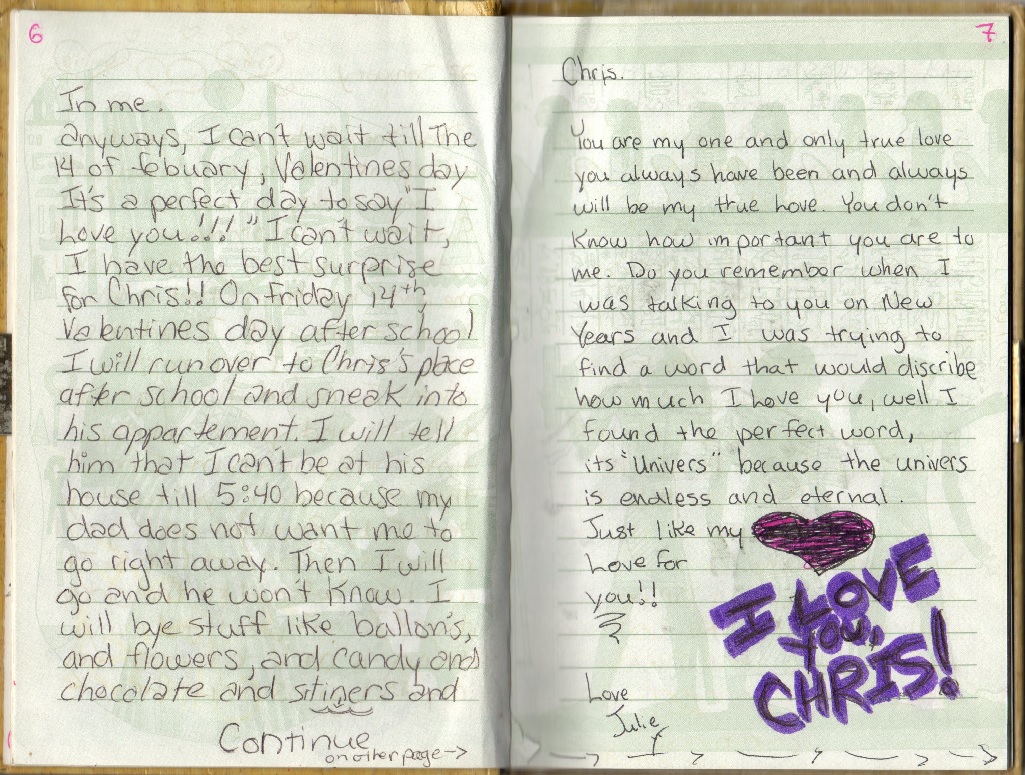 6
In me.
anyways, I can't wait till The
14 of febuary, Valentines day
It's a perfect day to say "I
Love you!!!" I can't wait,
I have the best surprise
for Chris!! On Friday 14th,
Valentines day after school
I will run over to Chris's place
after school and sneak into
his appartement. I will tell
him that I can't be at his
house till 5:40 because my
dad does not want me to
go right away. Then I will
go and he won't know. I
will bye stuff like ballon's,
and flowers, and candy and
chocolate and and
Continue
on other page->
7
Chris.
You are my one and only true love
you always have been and always
will be my true love. You don't
know how important you are to
me. Do you remember when I
was talking to you on New
Years and I was trying to
find a word that would discribe
how much I Love you, well I
found the perfect word,
its "Univers" because the univers
is endless and eternal.
Just like my
Love for
you!!
Love
Julie
I LOVE
YOU,
CHRIS!